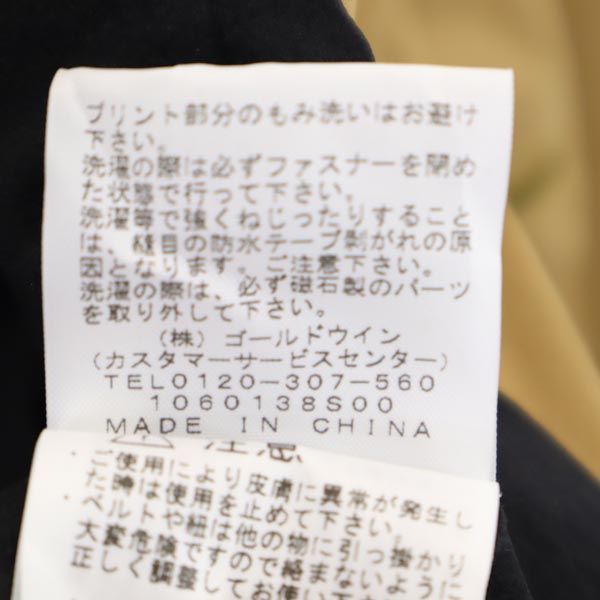 プリント部分のもみ洗いはお避け
下さい。
洗濯の際は必ずファスナーを閉め
た状態で行って下さい。
洗濯等で強くねじったりすること
は、縫目の防水テープ剥がれの原
因となります。ご注意下さい。
洗濯の際は、必ず磁石製のパーツ
を取り外して下さい。
(株) ゴールドウイン
(カスタマーサービスセンター)
TEL0120-307-560
1060138S00
MADE IN CHINA
⚠ 注意
・ご使用により皮膚に異常が発生し
た時は使用を止めて下さい。
・ベルトや紐は他の物に引っ掛かり
大変危険ですので絡まないように
正しく調整してお使い下